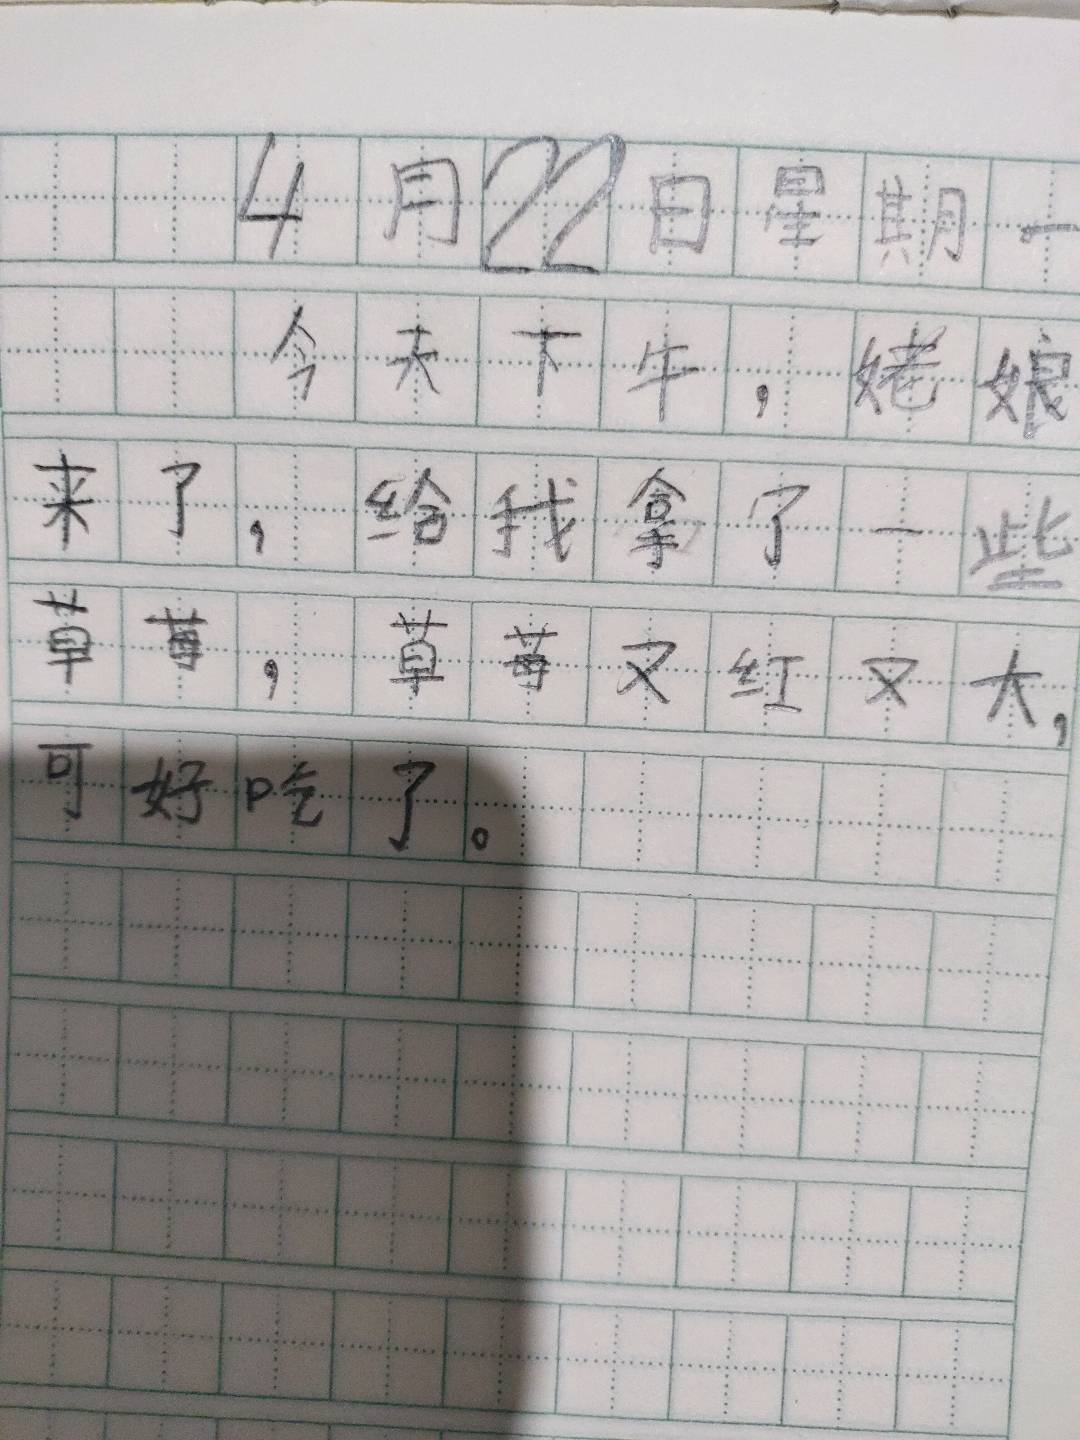 4月22日星期一
今天下午，姥娘
来了，给我拿了一些
草莓，草莓又红又大，
可好吃了。